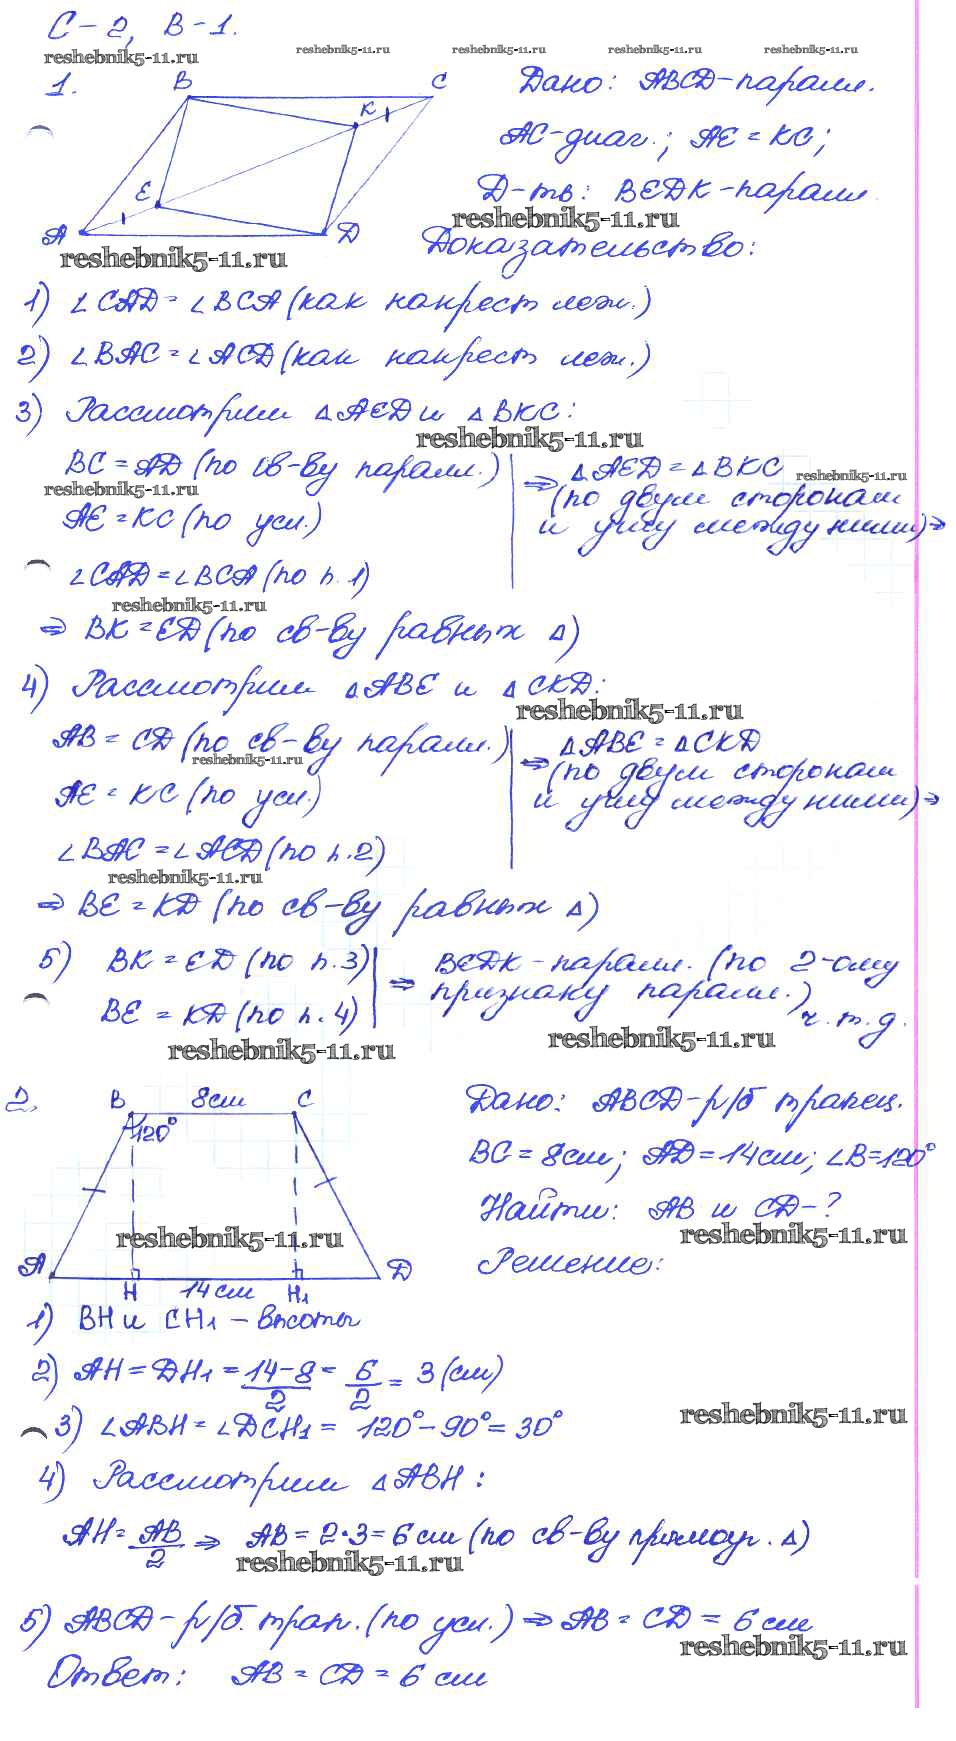 С-2, В-1.
reshebnik5-11.ru reshebnik5-11.ru reshebnik5-11.ru reshebnik5-11.ru reshebnik5-11.ru
1. B C K E A D
Дано: ABCD-паралл.
AC-диаг.; AE = KC;
Д-ть: BEDK-паралл.
reshebnik5-11.ru
Доказательство:
reshebnik5-11.ru
1) ∠CAD = ∠BCA (как накрест леж.)
2) ∠BAC = ∠ACD (как накрест леж.)
3) Рассмотрим △AED и △BKC:
reshebnik5-11.ru
BC = AD (по св-ву паралл.) ⇒ △AED = △BKC
reshebnik5-11.ru reshebnik5-11.ru
(по двум сторонам
AE = KC (по усл.) и углу между ними) ⇒
∠CAD = ∠BCA (по п. 1)
reshebnik5-11.ru
⇒ BK = ED (по св-ву равных △)
4) Рассмотрим △ABE и △CKD:
reshebnik5-11.ru
AB = CD (по св-ву паралл.) ⇒ △ABE = △CKD
reshebnik5-11.ru
(по двум сторонам
AE = KC (по усл.) и углу между ними) ⇒
∠BAC = ∠ACD (по п. 2)
reshebnik5-11.ru
⇒ BE = KD (по св-ву равных △)
5) BK = ED (по п. 3) ⇒ BEDK - паралл. (по 2-ому
BE = KD (по п. 4) признаку паралл.)
ч. т. д.
reshebnik5-11.ru reshebnik5-11.ru
2. B 8см C 120° A H 14см H₁ D
Дано: ABCD-р/б трапец.
BC = 8см; AD = 14см; ∠B=120°
Найти: AB и CD-?
reshebnik5-11.ru reshebnik5-11.ru
Решение:
1) BH и CH₁ - высоты
2) AH = DH₁ = (14-8)/2 = 6/2 = 3 (см)
reshebnik5-11.ru
3) ∠ABH = ∠DCH₁ = 120° - 90° = 30°
4) Рассмотрим △ABH:
AH = AB/2 ⇒ AB = 2·3 = 6 см (по св-ву прямоуг. △)
reshebnik5-11.ru
5) ABCD - р/б. трап. (по усл.) ⇒ AB = CD = 6 см
reshebnik5-11.ru
Ответ: AB = CD = 6 см